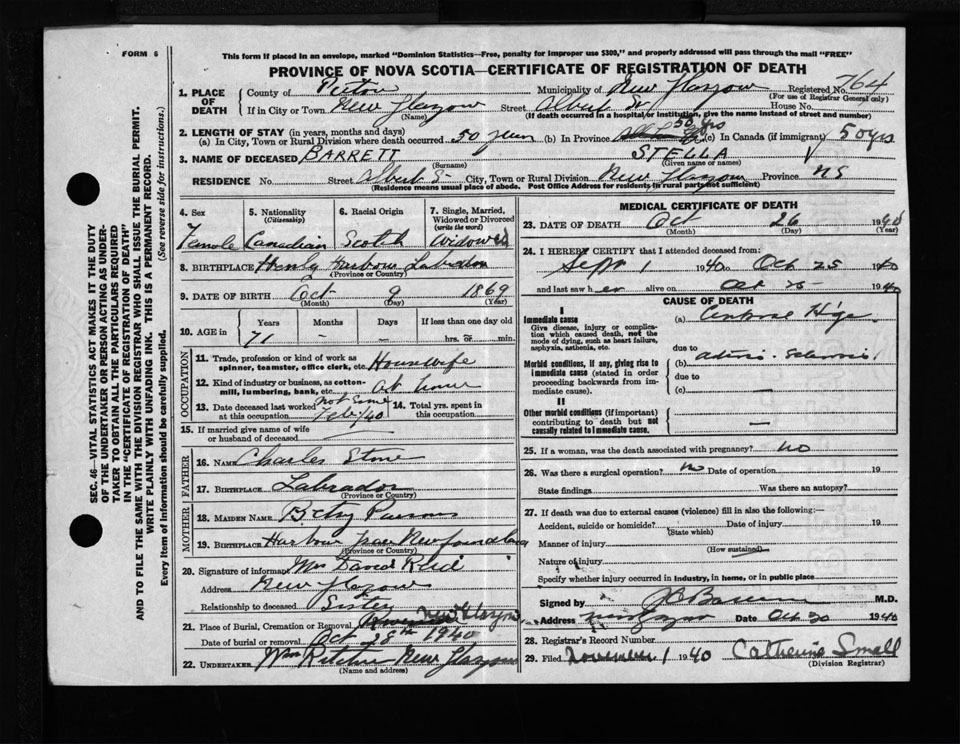 FORM 6
This form if placed in an envelope, marked "Dominion Statistics—Free, penalty for improper use $300," and properly addressed will pass through the mail "FREE"
PROVINCE OF NOVA SCOTIA—CERTIFICATE OF REGISTRATION OF DEATH
SEC. 46—VITAL STATISTICS ACT MAKES IT THE DUTY
OF THE UNDERTAKER OR PERSON ACTING AS UNDER-
TAKER TO OBTAIN ALL THE PARTICULARS REQUIRED
IN THE "CERTIFICATE OF REGISTRATION OF DEATH"
AND TO FILE THE SAME WITH THE DIVISION REGISTRAR WHO SHALL ISSUE THE BURIAL PERMIT.
WRITE PLAINLY WITH UNFADING INK. THIS IS A PERMANENT RECORD.
Every item of information should be carefully supplied. (See reverse side for instructions.)
1. PLACE OF DEATH County of Pictou Municipality of New Glasgow Registered No. 764
(For use of Registrar General only)
If in City or Town New Glasgow Street Albert St House No.
(Name) (If death occurred in a hospital or institution, give the name instead of street and number)
2. LENGTH OF STAY (in years, months and days)
(a) In City, Town or Rural Division where death occurred 50 years (b) In Province 50 yrs (c) In Canada (if immigrant) 50 yrs
3. NAME OF DECEASED BARRETT STELLA
(Surname) (Given name or names)
RESIDENCE No. Street Albert St City, Town or Rural Division New Glasgow Province NS
(Residence means usual place of abode. Post Office Address for residents in rural parts not sufficient)
4. Sex Female
5. Nationality (Citizenship) Canadian
6. Racial Origin Scotch
7. Single, Married, Widowed or Divorced (write the word) Widowed
8. BIRTHPLACE Henly Harbour Labrador
(Province or Country)
9. DATE OF BIRTH Oct 9 1869
(Month) (Day) (Year)
10. AGE in Years Months Days If less than one day old
71 – – hrs. or min.
OCCUPATION
11. Trade, profession or kind of work as spinner, teamster, office clerk, etc. Housewife
12. Kind of industry or business, as cotton-mill, lumbering, bank, etc. At home
13. Date deceased last worked at this occupation. Feb/40 14. Total yrs. spent in this occupation.
15. If married give name of wife or husband of deceased
FATHER
16. NAME Charles Stone
17. BIRTHPLACE Labrador
(Province or Country)
MOTHER
18. MAIDEN NAME Betsy Parsons
19. BIRTHPLACE Harbour Grace Newfoundland
(Province or Country)
20. Signature of informant Mrs David Reid
Address New Glasgow
Relationship to deceased Sister
21. Place of Burial, Cremation or Removal New Glasgow
Date of burial or removal Oct 28th 1940
22. UNDERTAKER Wm Ritchie New Glasgow
(Name and address)
MEDICAL CERTIFICATE OF DEATH
23. DATE OF DEATH Oct 26 1940
(Month) (Day) (Year)
24. I HEREBY CERTIFY that I attended deceased from:
Sept 1 1940 to Oct 25 1940
and last saw her alive on Oct 25 1940
CAUSE OF DEATH
I
Immediate cause
Give disease, injury or complication which caused death, not the mode of dying, such as heart failure, asphyxia, asthenia, etc.
(a) Hge
due to
Morbid conditions, if any, giving rise to immediate cause (stated in order proceeding backwards from immediate cause).
(b)
due to
(c) —
II
Other morbid conditions (if important) contributing to death but not causally related to immediate cause.
—
25. If a woman, was the death associated with pregnancy? no
26. Was there a surgical operation? no Date of operation 19
State findings Was there an autopsy?
27. If death was due to external causes (violence) fill in also the following:—
Accident, suicide or homicide? Date of injury 19
(State which)
Manner of injury
(How sustained)
Nature of injury
Specify whether injury occurred in industry, in home, or in public place
Signed by M.D.
Address New Glasgow Date Oct 30 1940
28. Registrar's Record Number
29. Filed November 1 1940 Catherine Small
(Division Registrar)